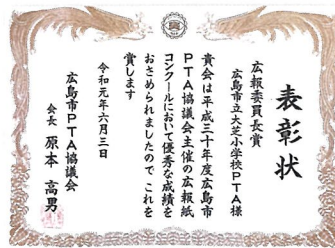 表彰状
広報委員長賞
広島市立大芝小学校PTA様
貴会は平成三十年度広島市
PTA協議会主催の広報紙
コンクールにおいて優秀な成績を
おさめられましたので これを
賞します
令和元年六月三日
広島市PTA協議会
会長 原本 高男